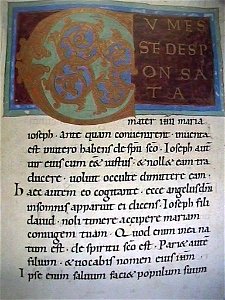 C VMES
SEDESP
ON SA
TA
mater illi maria
ioseph. ante quam convenirent. inventa
est in utero habens de spu sco. Ioseph aut
vir eius cum eet iustus. & nollet eam tra
ducere. voluit occulte dimittere eam.
hec autem eo cogitante. ecce angelus dni
in somnis apparuit ei dicens. Ioseph fili
david. noli timere accipere mariam
coniugem tuam. Quod enim in ea na
tum est. de spiritu sco est. Pariet aute
filium. & vocabis nomen eius ihm
Ipse enim salvum faciet populum suum